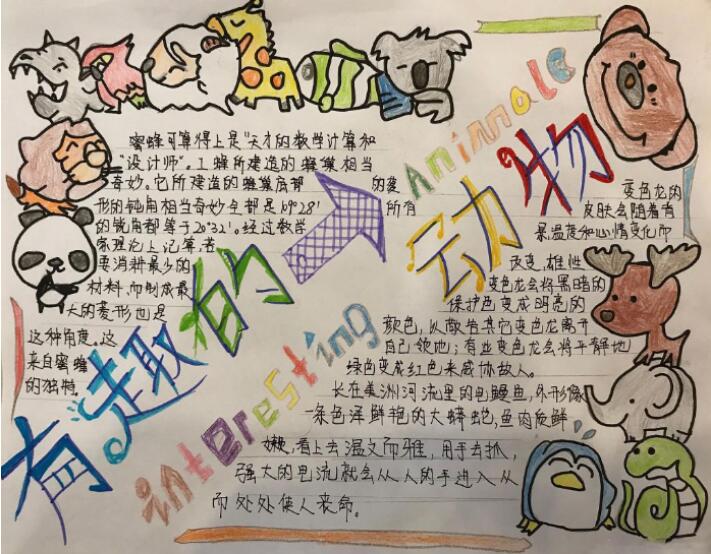 有趣的动物
interesting
Aninmale
蜜蜂可算得上是"天才的数学计算和
"设计师"。工蜂所建造的蜂巢相当
奇妙。它所建造的蜂巢底部
的菱
形的钝角相当奇妙全都是109°28'
所有
的锐角都等于70°32'。经过数学
家理论上记算,若
要消耗最少的
材料,而制成最
大的菱形也是
这种角度。这
来自蜜蜂
的独特。
变色龙的
皮肤会随着有
温度和心情变化而
改变,雄性
变色龙会将黑暗的
保护色变成明亮的
颜色,以敵告其它变色龙离开
自己领地;有些变色龙会将平静地
绿色变成红色来威协故人。
长在美洲河流里的电鳗鱼,外形像
一条色泽鲜艳的大蟒蛇,鱼肉质鲜
嫩,看上去温文而雅,用手去抓,
强大的电流就会从人的手进入从
而处处使人丧命。